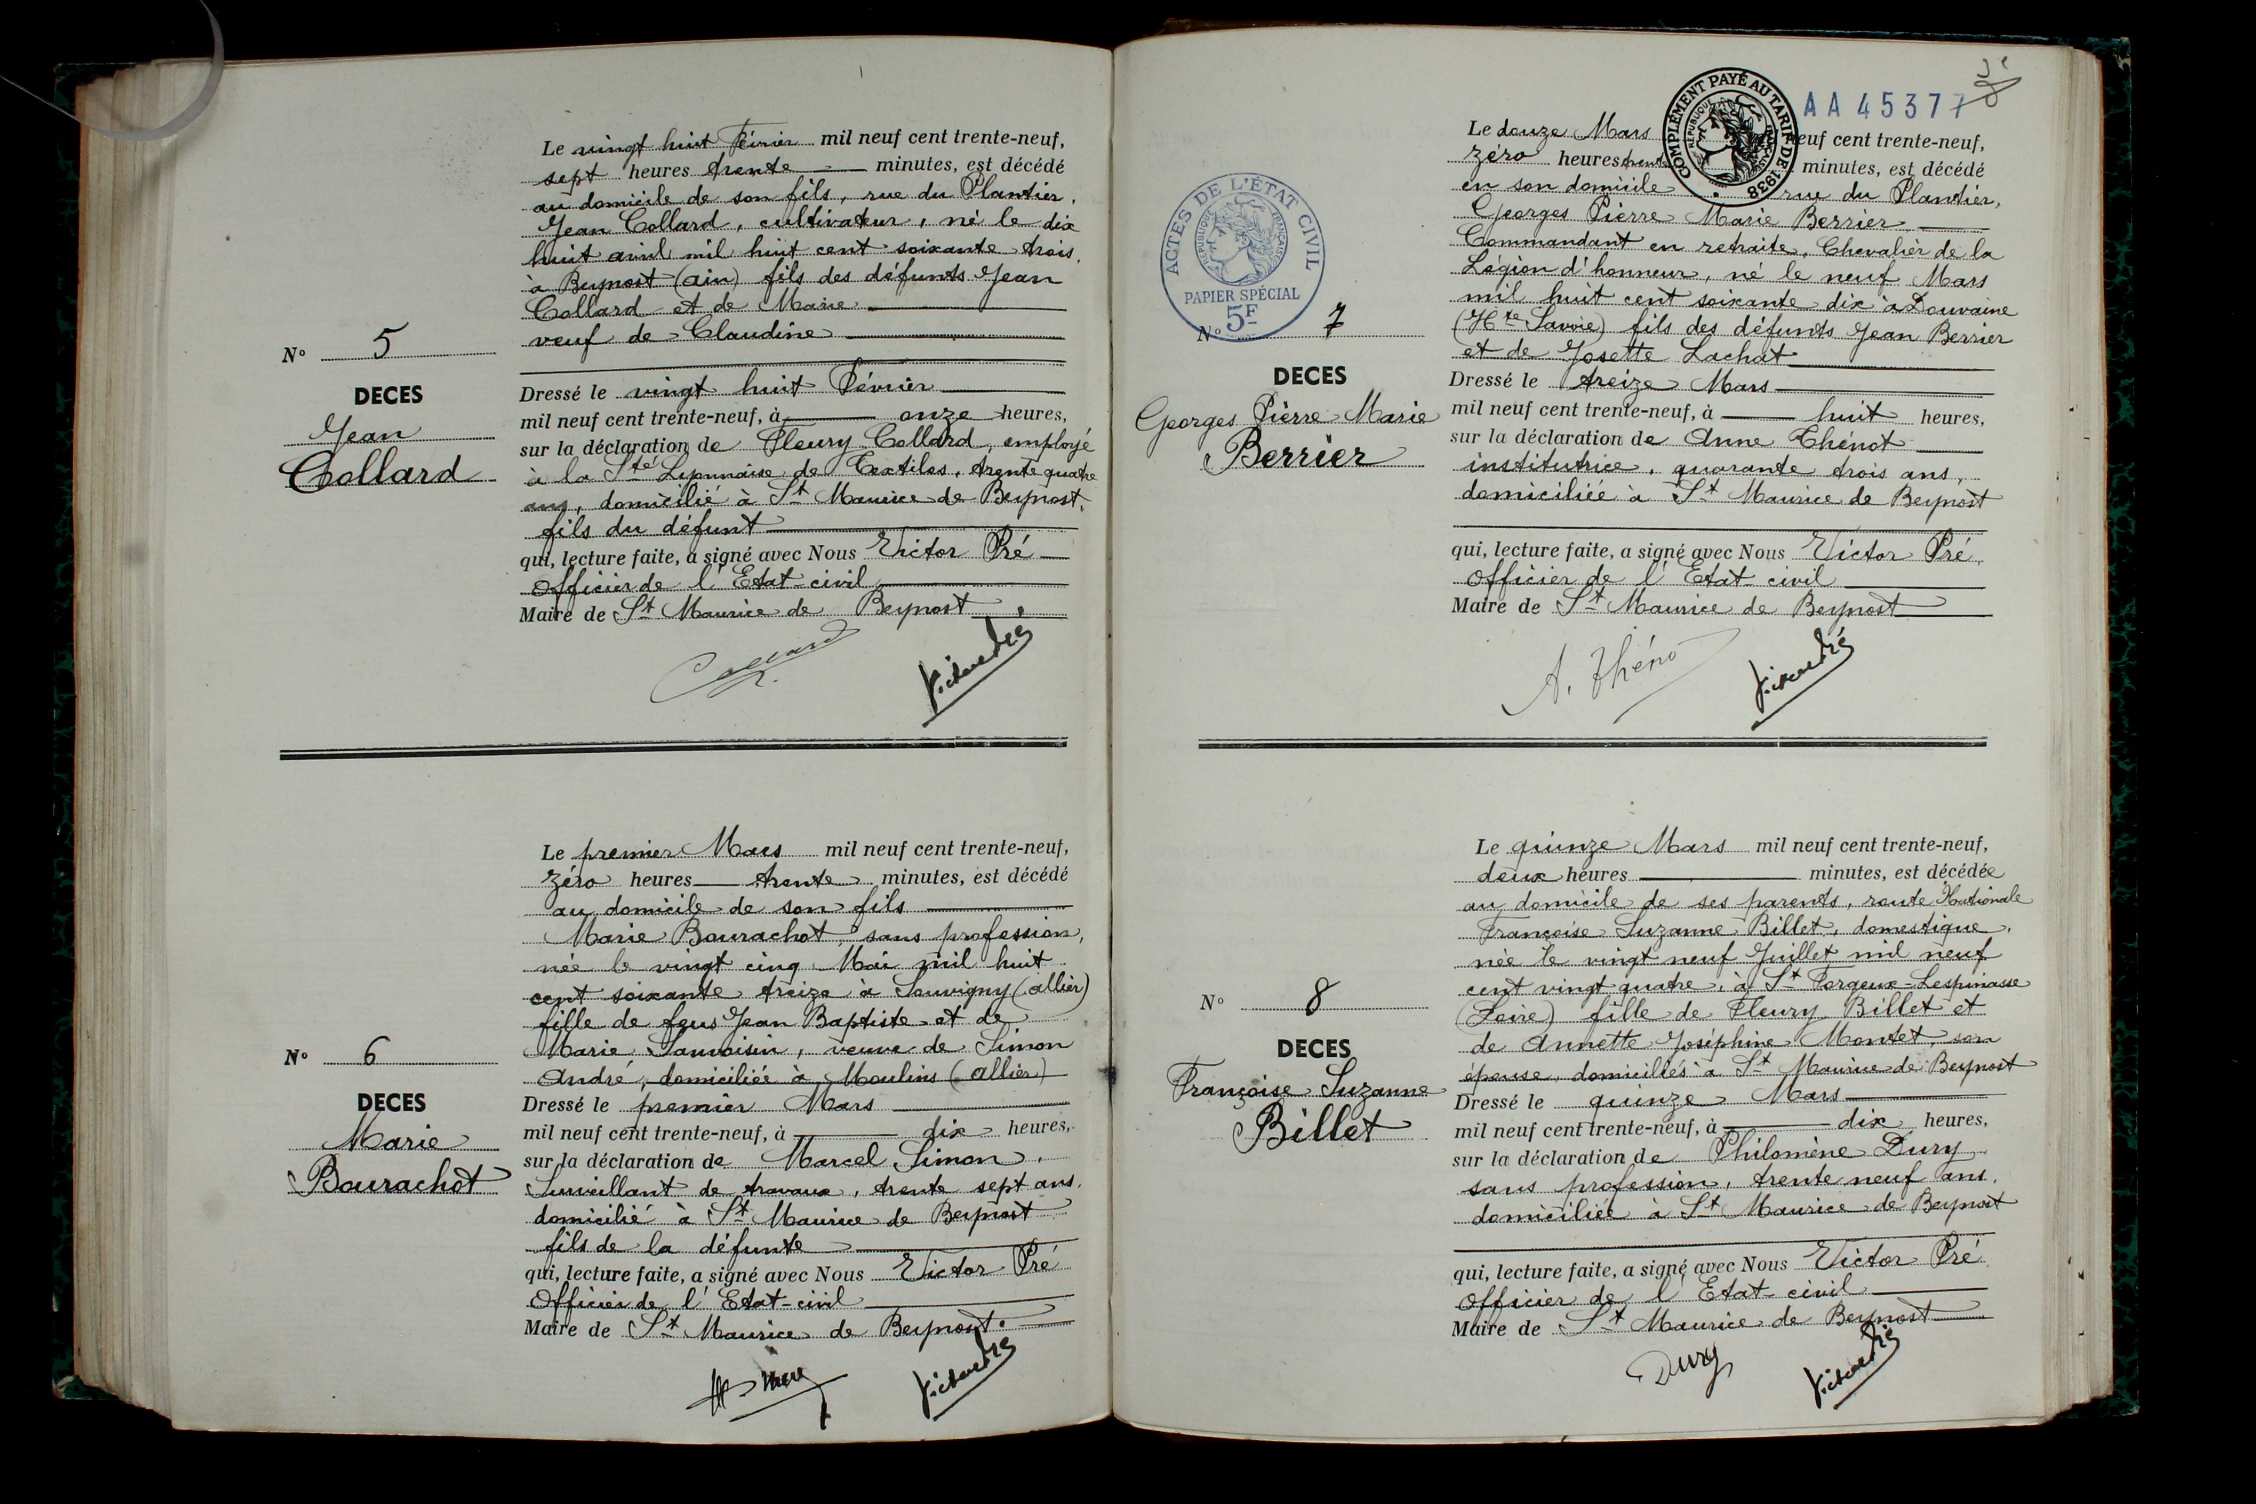 Le vingt huit Février mil neuf cent trente-neuf,
sept heures trente minutes, est décédé
au domicile de son fils, rue du Plantier,
Jean Collard, cultivateur, né le dix
huit avril mil huit cent soixante trois,
à Beynost (ain) fils des défunts Jean
Collard et de Marie
veuf de Claudine
N° 5
DECES
Jean
Collard
Dressé le vingt huit Février
mil neuf cent trente-neuf, à onze heures,
sur la déclaration de Fleury Collard, employé
à la Sté Lyonnaise de Textiles, trente quatre
ans, domicilié à St Maurice de Beynost,
fils du défunt
qui, lecture faite, a signé avec Nous Victor Pré
Officier de l'Etat-civil
Maire de St Maurice de Beynost
Collard
Victor Pré
Le premier Mars mil neuf cent trente-neuf,
Zéro heures trente minutes, est décédé
au domicile de son fils
Marie Bourachot sans profession,
née le vingt cinq Mai mil huit
cent soixante treize à Souvigny (allier)
fille de feus Jean Baptiste et de
Marie Sauvoisin, veuve de Simon
André, domiciliée à Moulins (allier)
N° 6
DECES
Marie
Bourachot
Dressé le premier Mars
mil neuf cent trente-neuf, à dix heures,
sur la déclaration de Marcel Simon,
Surveillant de travaux, trente sept ans,
domicilié à St Maurice de Beynost
fils de la défunte
qui, lecture faite, a signé avec Nous Victor Pré
Officier de l'Etat-civil
Maire de St Maurice de Beynost.
Victor Pré
AA 45377
COMPLÉMENT PAYÉ AU TARIF DE 1938
RÉPUBLIQUE FRANÇAISE
Le douze Mars neuf cent trente-neuf,
zéro heures trente minutes, est décédé
en son domicile rue du Plantier,
Georges Pierre Marie Berrier
Commandant en retraite, Chevalier de la
Légion d'honneur, né le neuf Mars
mil huit cent soixante dix à Douvaine
(Hte Savoie) fils des défunts Jean Berrier
et de Josette Lachat
ACTES DE L'ÉTAT CIVIL
RÉPUBLIQUE FRANÇAISE
PAPIER SPÉCIAL
5F
N° 7
DECES
Georges Pierre Marie
Berrier
Dressé le treize Mars
mil neuf cent trente-neuf, à huit heures,
sur la déclaration de Anne Thénot
institutrice, quarante trois ans,
domiciliée à St Maurice de Beynost
qui, lecture faite, a signé avec Nous Victor Pré,
Officier de l'Etat civil
Maire de St Maurice de Beynost
A. Théno
Victor Pré
Le quinze Mars mil neuf cent trente-neuf,
deux heures minutes, est décédée
au domicile de ses parents, route Nationale
Françoise Suzanne Billet, domestique,
née le vingt neuf Juillet mil neuf
cent vingt quatre, à St Forgeux-Lespinasse
(Loire) fille de Fleury Billet et
de Annette Joséphine Montet, son
épouse, domiciliés à St Maurice de Beynost
N° 8
DECES
Françoise Suzanne
Billet
Dressé le quinze Mars
mil neuf cent trente-neuf, à dix heures,
sur la déclaration de Philomène Dury
sans profession, trente neuf ans,
domiciliée à St Maurice de Beynost
qui, lecture faite, a signé avec Nous Victor Pré
Officier de l'Etat-civil
Maire de St Maurice de Beynost
Dury
Victor Pré